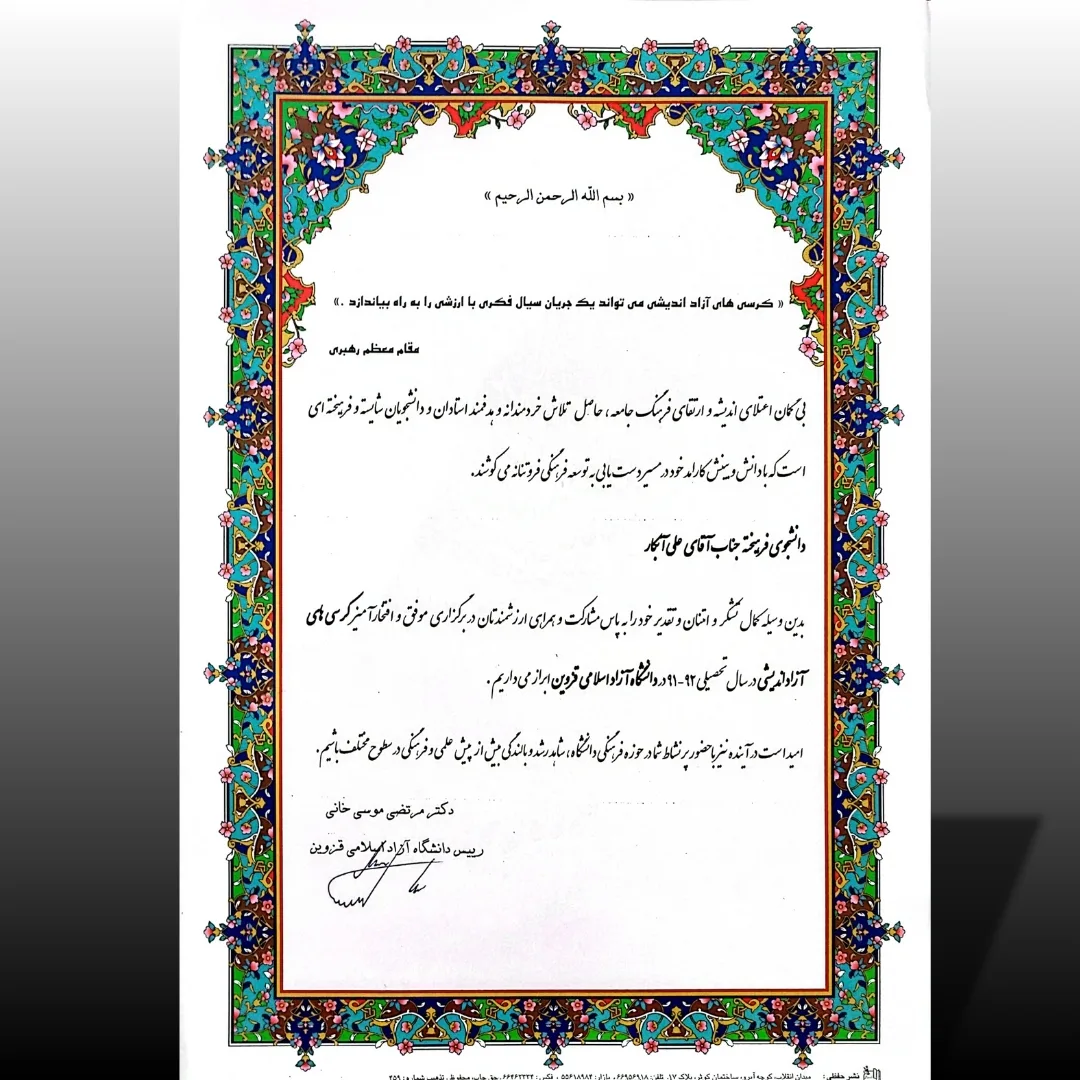 « بسم الله الرحمن الرحیم »
« کرسی های آزاد اندیشی می تواند یک جریان سیال فکری با ارزشی را به راه بیاندازد .»
مقام معظم رهبری
بی گمان اعتلای اندیشه و ارتقای فرهنگ جامعه ، حاصل تلاش خردمندانه و هدفمند استادان و دانشجویان شایسته و فرهیخته ای
است که با دانش و بینش کارامد خود در مسیر دست یابی به توسعه فرهنگی فروتنانه می کوشند.
دانشجوی فرهیخته جناب آقای علی آبکار
بدین وسیله کمال تشکر و امتنان و تقدیر خود را به پاس مشارکت و همراهی ارزشمندتان در برگزاری موفق و افتخارآمیز کرسی های
آزاداندیشی در سال تحصیلی ۹۲-۹۱ در دانشگاه آزاد اسلامی قزوین ابراز می داریم .
امید است در آینده نیز با حضور پر نشاط شما در حوزه فرهنگی دانشگاه ، شاهد رشد و بالندگی بیش از پیش علمی و فرهنگی در سطوح مختلف باشیم.
دکتر مرتضی موسی خانی
رییس دانشگاه آزاد اسلامی قزوین
نشر حفظی : میدان انقلاب، کوچه آبرو، ساختمان کوثر، پلاک ۱۷، تلفن: ۶۶۹۵۶۹۱۸ ، بازار: ۵۵۶۱۸۹۸۴ ، فکس : ۶۶۴۶۳۳۳۴، حق چاپ محفوظ ، تذهیب شماره : ۴۵۹